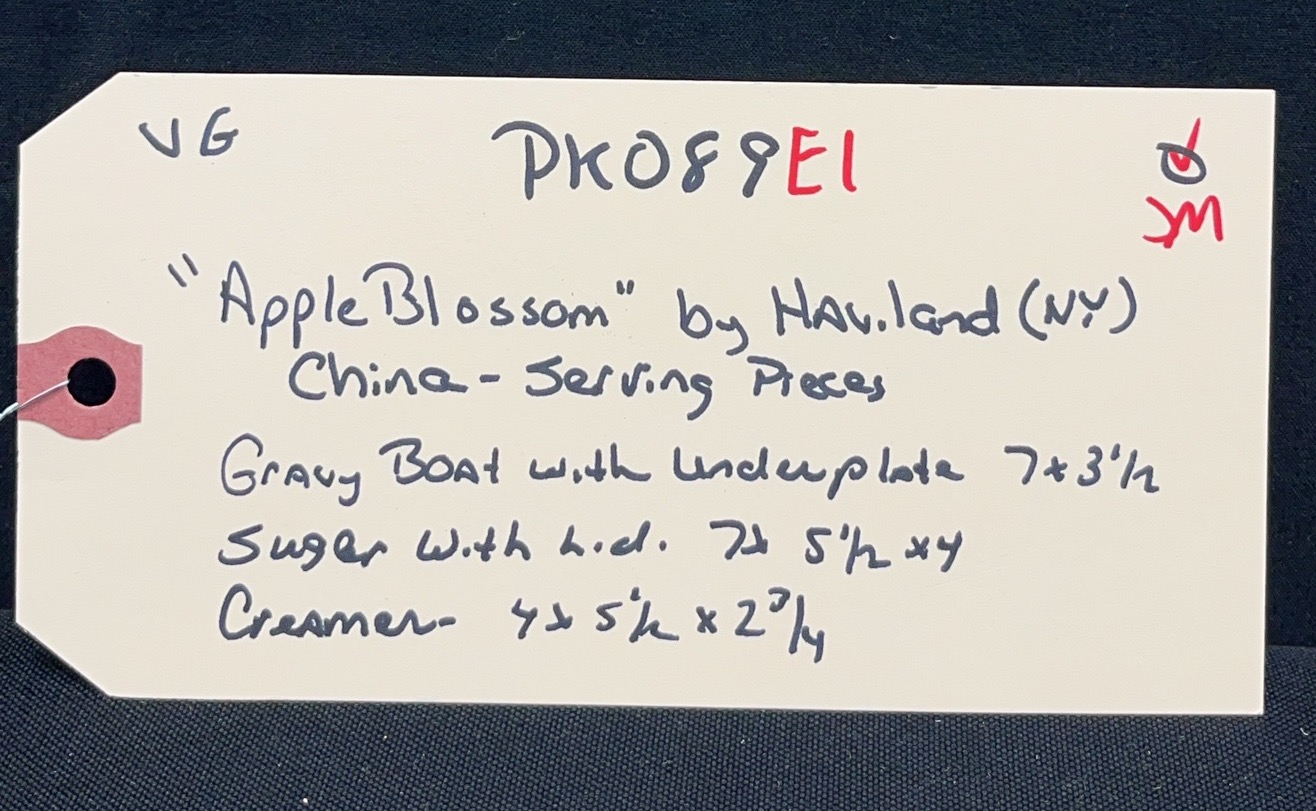 VG PK089E1
JM
"Apple Blossom" by Haviland (NY)
China - Serving Pieces
Gravy Boat with underplate 7x3 1/2
Suger with Lid. 7x 5 1/2 x 4
Creamer- 4x 5 1/2 x 2 3/4